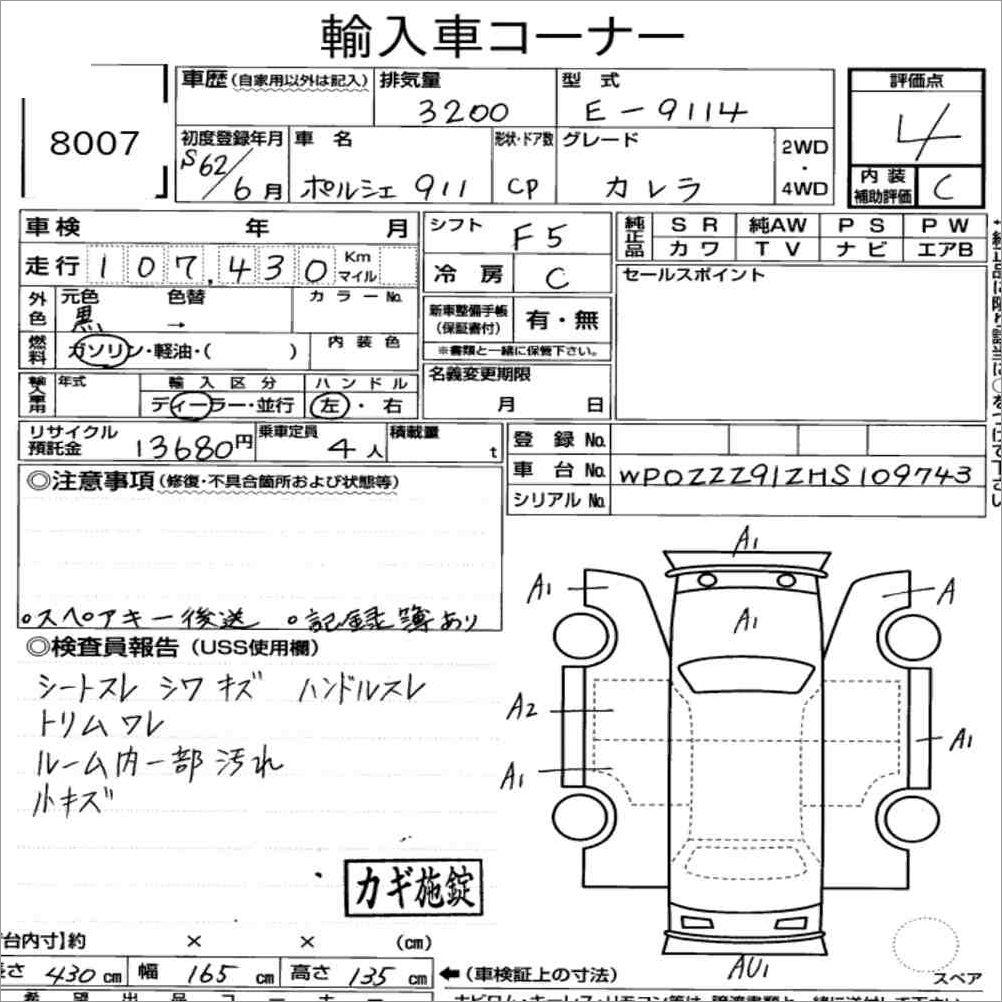 輸入車コーナー
8007
車歴(自家用以外は記入) 排気量 3200 型式 E-9114
評価点 4
初度登録年月 S62/6月 車名 ポルシェ 911 形状・ドア数 CP グレード カレラ 2WD・4WD
内装補助評価 C
車検 年 月 シフト F5
純正品 SR 純AW PS PW
カワ TV ナビ エアB
走行 107,430 Km マイル 冷房 C
セールスポイント
外色 元色 黒 色替 → カラーNo.
新車整備手帳(保証書付) 有・無
※書類と一緒に保管下さい。
燃料 ガソリン・軽油・( ) 内装色
輸入車用 年式 輸入区分 ディーラー・並行 ハンドル 左・右
名義変更期限 月 日
リサイクル預託金 13680円 乗車定員 4人 積載量 t
登録No.
車台No. WP0ZZZ91ZHS109743
シリアルNo.
◎注意事項(修復・不具合箇所および状態等)
○スペアキー後送 ○記録簿あり
◎検査員報告(USS使用欄)
シートスレ シワ キズ ハンドルスレ
トリムワレ
ルーム内一部汚れ
小キズ
カギ施錠
A1
A1 A
A1
A2
A1
A1
AU1
スペア
台内寸】約 × × (cm)
長さ 430cm 幅 165cm 高さ 135cm ←(車検証上の寸法)